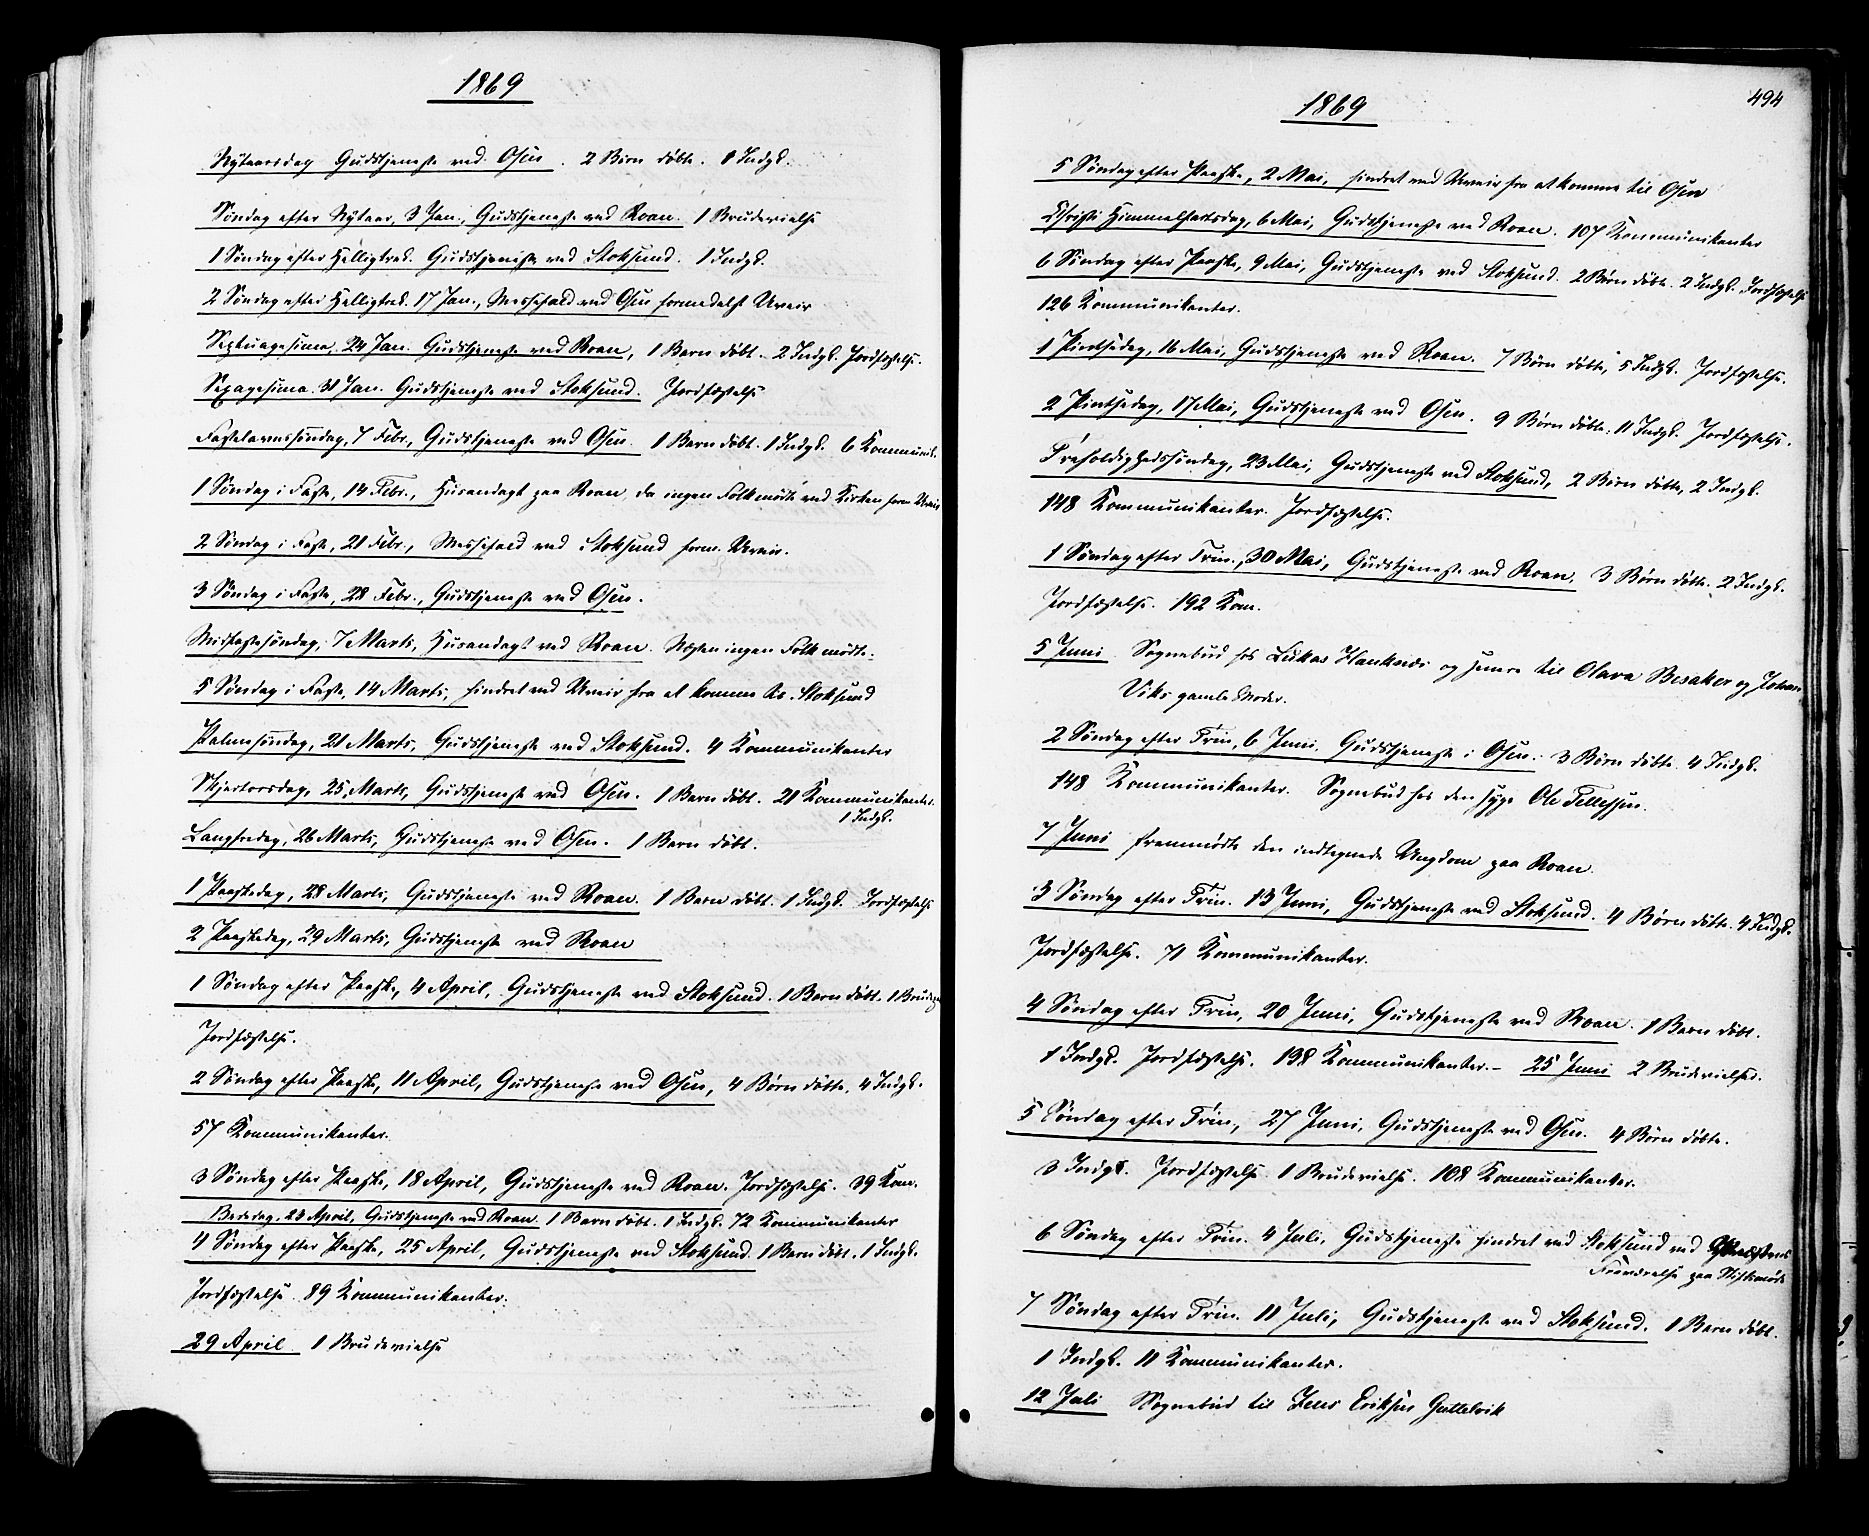 1869
Nytaarsdag Gudstjeneste ved Osen. 2 Børn døbte. 1 Indgk.
Søndag efter Nytaar, 3 Jan., Gudstjeneste ved Roan. 1 Brudevielse
1 Søndag efter Helligtrek. Gudstjeneste ved Stoksund. 1 Indgk.
2 Søndag efter Helligtrek. 17 Jan., Messefald ved Osen formedelst Uveir
Septuagesima. 24 Jan. Gudstjeneste ved Roan, 1 Barn døbt. 2 Indgk. Jordfæstelse.
Sexagesima 31 Jan. Gudstjeneste ved Stoksund. Jordfæstelse
Fastelavnssøndag, 7 Febr., Gudstjeneste ved Osen. 1 Barn døbt. 1 Indgk. 6 Kommunik.
1 Søndag i Faste, 14 Febr., Husandagt paa Roan, da ingen Folk mødte ved Kirken form. Uveir
2 Søndag i Faste, 21 Febr., Messefald ved Stoksund form. Uveir.
3 Søndag i Faste, 28 Febr., Gudstjeneste ved Osen.
Midfastesøndag, 7 Marts, Husandagt ved Roan. Næsten ingen Folk mødte.
5 Søndag i Faste, 14 Marts, hindret ved Uveir fra at komme to. Stoksund
Palmesøndag, 21 Marts, Gudstjeneste ved Stoksund. 4 Kommunikanter
Skjertorsdag, 25 Marts, Gudstjeneste ved Osen. 1 Barn døbt. 21 Kommunikanter.
1 Indgk.
Langfredag, 26 Marts, Gudstjeneste ved Osen. 1 Barn døbt.
1 Paaskedag, 28 Marts, Gudstjeneste ved Roan. 1 Barn døbt. 1 Indgk. Jordfæstelse
2 Paaskedag, 29 Marts, Gudstjeneste ved Roan
1 Søndag efter Paaske, 4 April, Gudstjeneste ved Stoksund. 1 Barn døbt. 1
Jordfæstelse.
2 Søndag efter Paaske, 11 April, Gudstjeneste ved Osen, 4 Børn døbte. 4 Indgk.
57 Kommunikanter.
3 Søndag efter Paaske, 18 April, Gudstjeneste ved Roan. Jordfæstelse. 39 Kom.
Bededag, 23 April, Gudstjeneste ved Roan. 1 Barn døbt. 1 Indgk. 72 Kommunikanter
4 Søndag efter Paaske, 25 April, Gudstjeneste ved Stoksund. 1 Barn døbt. 1 Indgk.
Jordfæstelse. 89 Kommunikanter.
29 April 1 Brudevielse
1869
494
5 Søndag efter Paaske, 2 Mai, hindret ved Uveir fra at komme til Osen
Christi Himmelfartsdag, 6 Mai, Gudstjeneste ved Roan. 107 Kommunikanter
6 Søndag efter Paaske, 9 Mai, Gudstjeneste ved Stoksund. 2 Børn døbt. 2 Indgk. Jordfæstelse
126 Kommunikanter.
1 Pintsedag, 16 Mai, Gudstjeneste ved Roan. 7 Børn døbte, 5 Indgk. Jordfæstelse.
2 Pintsedag, 17 Mai, Gudstjeneste ved Osen. 9 Børn døbte. 11 Indgk. Jordfæstelse.
Trefoldighedssøndag, 23 Mai, Gudstjeneste ved Stoksund, 2 Børn døbte, 2 Indgk.
148 Kommunikanter. Jordfæstelse.
1 Søndag efter Trin., 30 Mai, Gudstjeneste ved Roan. 3 Børn døbte. 2 Indgk.
Jordfæstelse. 192 Kom.
5 Juni Sognebud hos Lukas Hauknæs og senere til Olava Besaker og Johan
Viks gamle Moder.
2 Søndag efter Trin, 6 Juni. Gudstjeneste i Osen. 3 Børn døbte. 4 Indgk.
148 Kommunikanter. Sognebud hos den syge Ole Tellefsen.
7 Juni fremmødte den indtegnede Ungdom paa Roan.
3 Søndag efter Trin. 13 Juni, Gudstjeneste ved Stoksund. 4 Børn døbte. 4 Indgk.
Jordfæstelse. 71 Kommunikanter.
4 Søndag efter Trin, 20 Juni, Gudstjeneste ved Roan. 1 Barn døbt.
1 Indgk. Jordfæstelse. 138 Kommunikanter. – 25 Juni 2 Brudevielser.
5 Søndag efter Trin, 27 Juni, Gudstjeneste ved Osen. 4 Børn døbte.
3 Indgk. Jordfæstelse. 1 Brudevielse. 108 Kommunikanter.
6 Søndag efter Trin. 4 Juli, Gudstjeneste hindret ved Stoksund ved Præstens
Fraværelse paa Stiftsmøde
7 Søndag efter Trin. 11 Juli, Gudstjeneste ved Stoksund. 1 Barn døbt.
1 Indgk. 11 Kommunikanter.
12 Juli Sognebud til Jens Eriksen